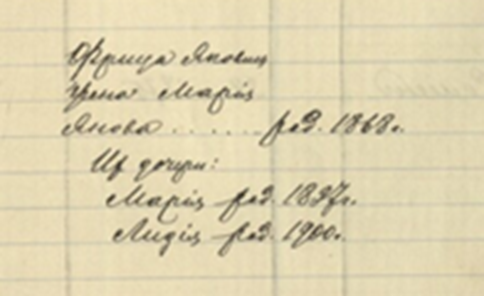 Фрица Яковл
жена Марія
Янова ...... род. 1868г.
Их дочери:
Марія род. 1897г.
Лидія род. 1900г.